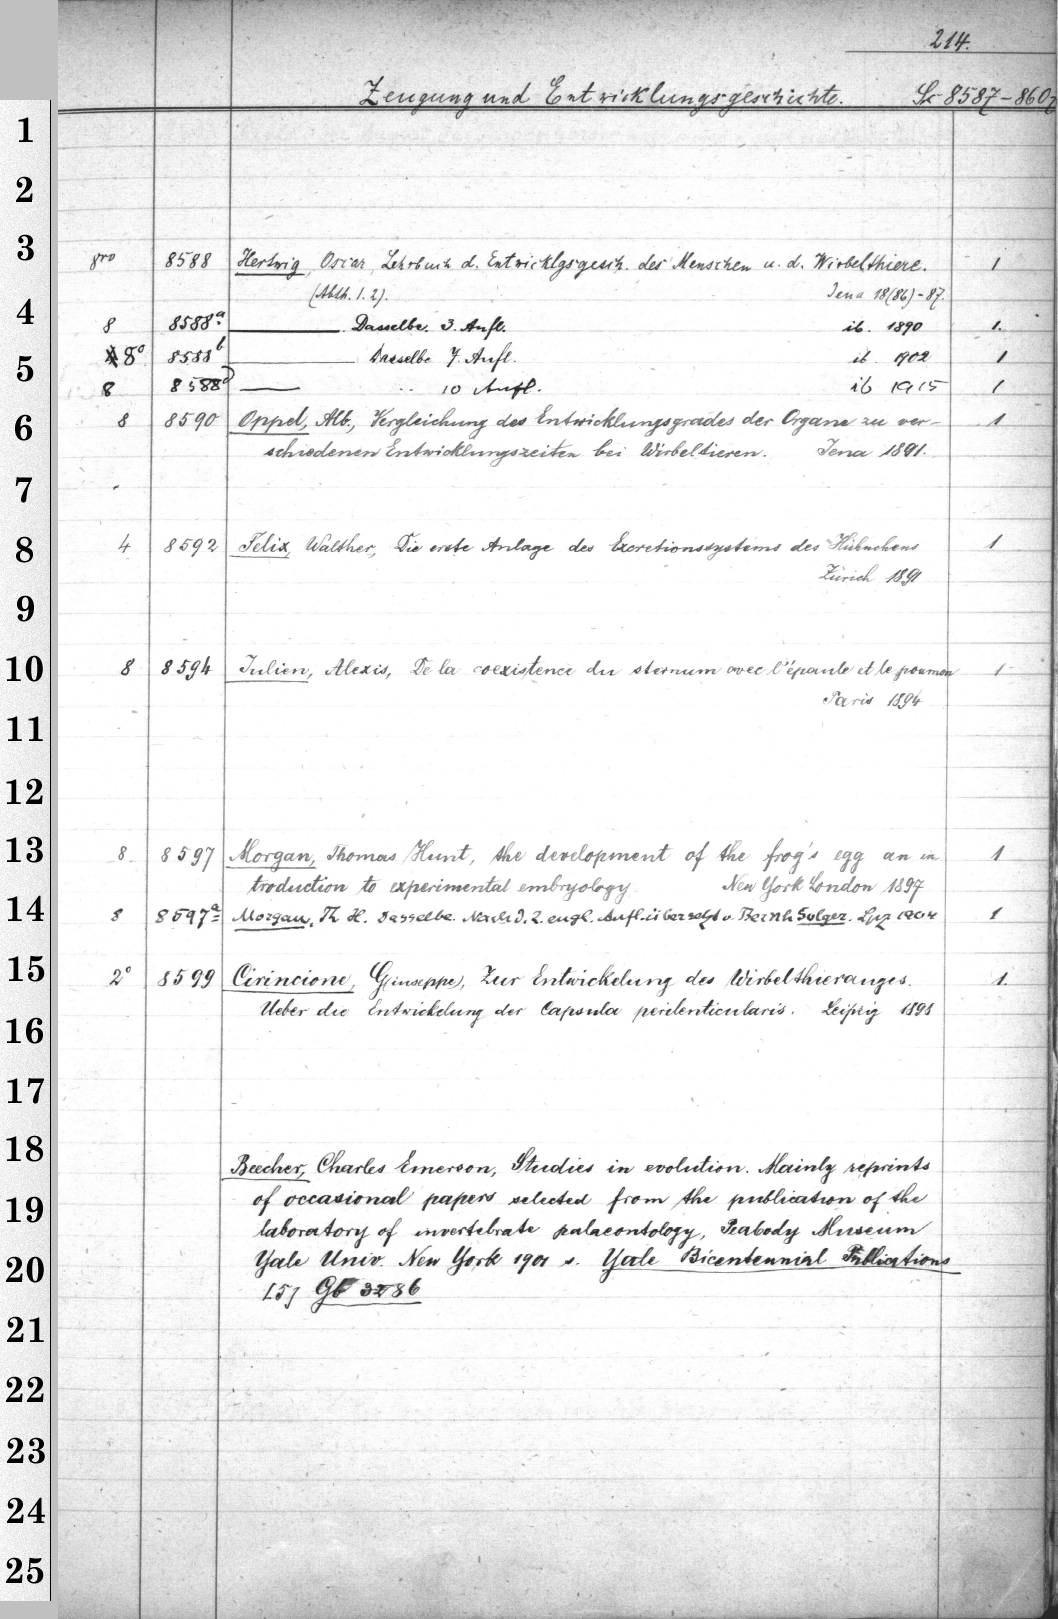 214.
Zeugung und Entwicklungsgeschichte. Sc 8587-8607
1
2
3
8vo 8588 Hertwig, Oscar, Lehrbuch d. Entwicklgsgesch. des Menschen u. d. Wirbelthiere. 1
(Abth. 1. 2). Jena 18(86)-87.
4
8 8588a. Dasselbe. 3. Aufl. ib. 1890 1.
5
8° 8588b Dasselbe 7. Aufl. ib. 1902 1
8 8588 " 10 Aufl. ib 1915 1
6
8 8590 Oppel, Alb., Vergleichung des Entwicklungsgrades der Organe zu ver- 1
schiedenen Entwicklungszeiten bei Wirbeltieren. Jena 1891.
7
8
4 8592 Felix, Walther, Die erste Anlage des Excretionssystems des Hühnchens 1
Zürich 1891
9
10
8 8594 Julien, Alexis, De la coexistence du sternum avec l'épaule et le poumon 1
Paris 1894
11
12
13
8 8597 Morgan, Thomas Hunt, the development of the frog's egg an in 1
troduction to experimental embryology New York London 1897
14
8 8597a Morgan, Th. H. Dasselbe. Nach d. 2. engl. Aufl. übersetzt v. Bernh Solger. Lpz 1904 1
15
2° 8599 Cirincione, G(iuseppe), Zur Entwickelung des Wirbelthierauges. 1.
16
Ueber die Entwickelung der Capsula perilenticularis. Leipzig 1898
17
18
Beecher, Charles Emerson, Studies in evolution. Mainly reprints
19
of occasional papers selected from the publication of the
laboratory of invertebrate palaeontology, Peabody Museum
20
Yale Univ. New York 1901 s. Yale Bicentennial Publications
[5] 86
21
22
23
24
25